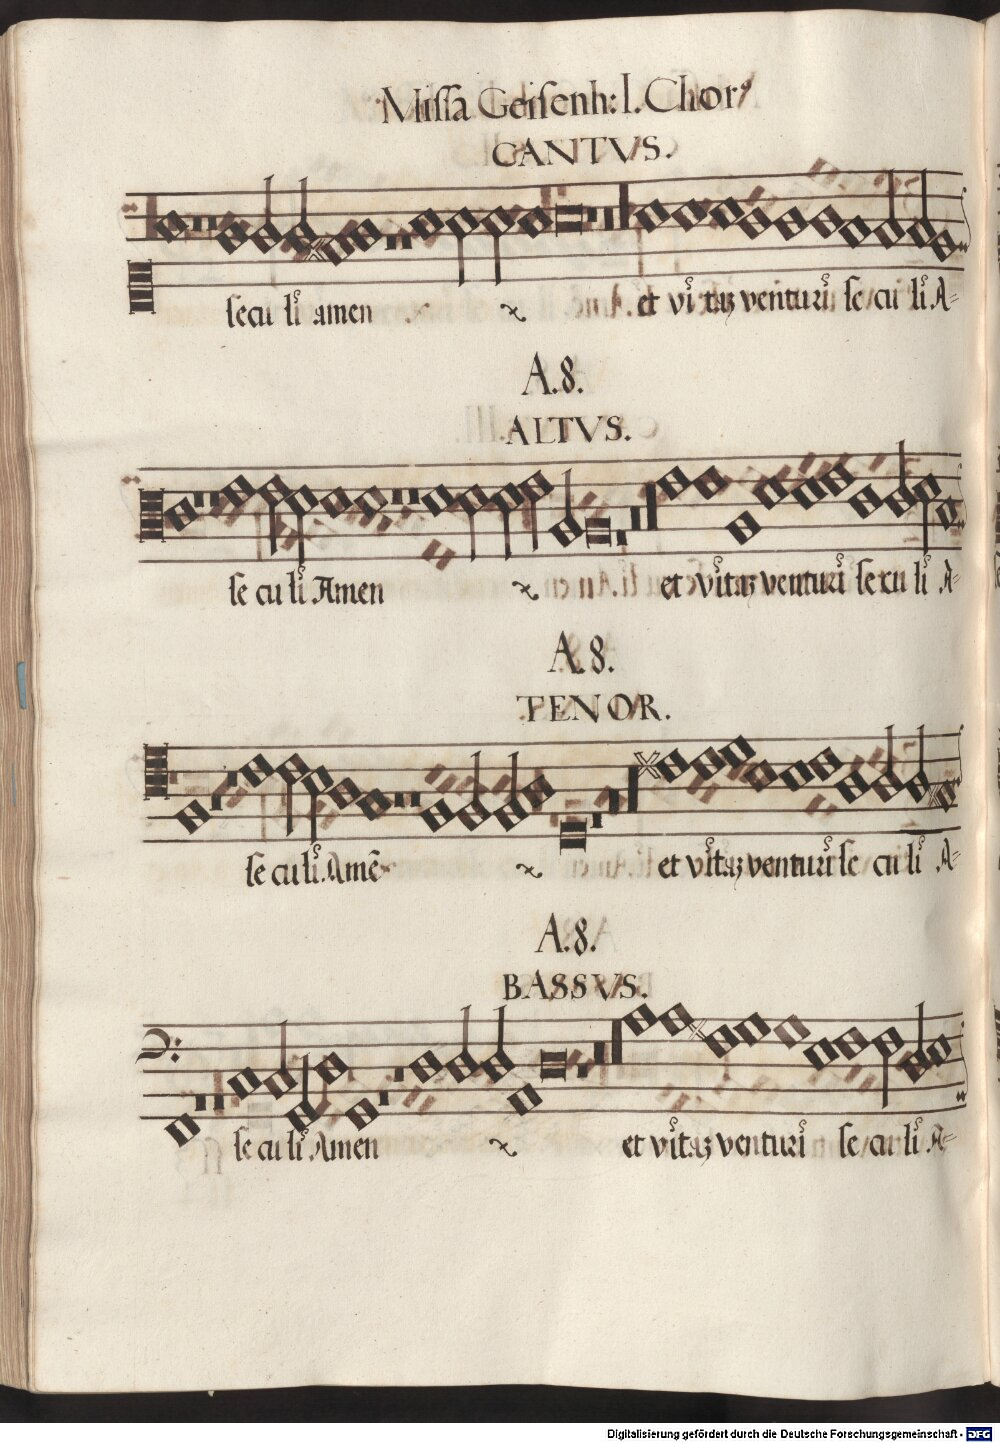 Missa Geisenh: I. Chor9
CANTVS.
secu li amen et vitæ venturi se cu li A=
A. 8.
ALTVS.
se cu li Amen et vitæ venturi se cu li A=
A. 8.
TENOR.
se cu li Amē et vitæ venturi se cu li A=
A. 8.
BASSVS.
se cu li Amen et vitæ venturi se cu li A=
Digitalisierung gefördert durch die Deutsche Forschungsgemeinschaft - DFG